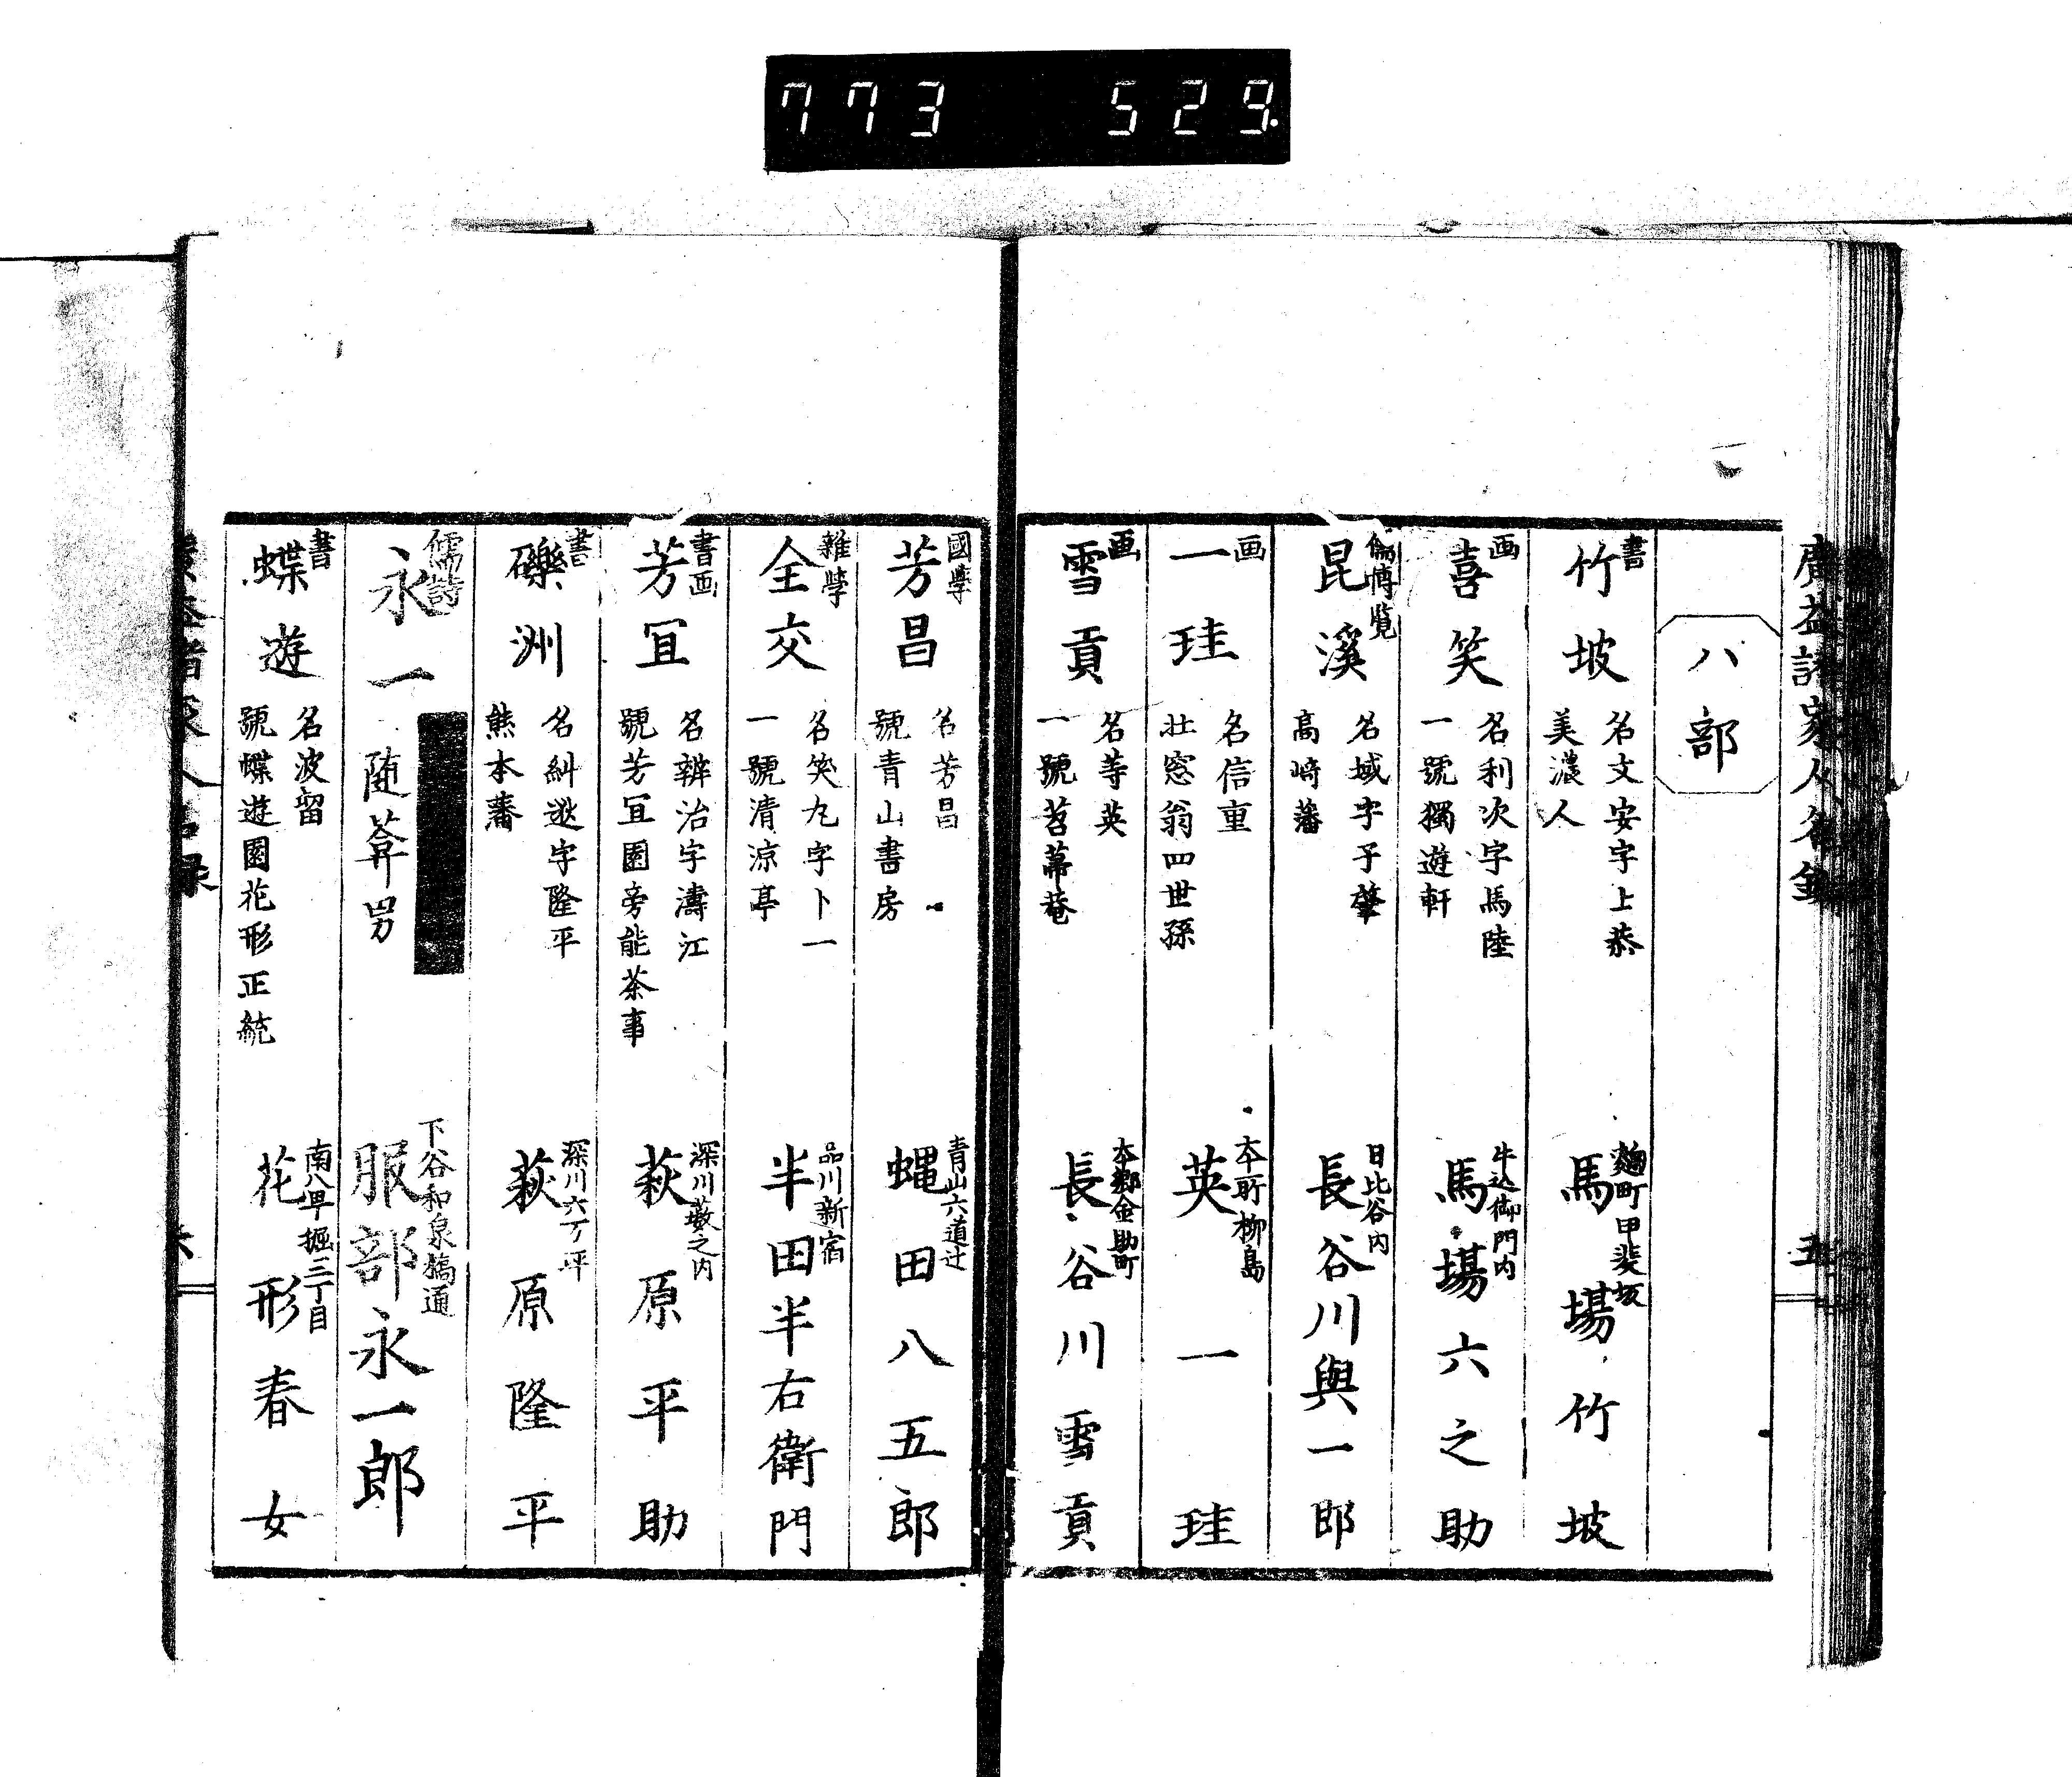 773 529.
廣益諸家人名録
五
八部
書
竹坡
名文安字上恭
美濃人
麹町甲斐坂
馬場竹坡
画
喜笑
名利次字馬陸
一號獨遊軒
牛込御門内
馬場六之助
儒博覧
昆溪
名域字子肇
高崎藩
日比谷内
長谷川與一郎
画
一珪
名信重
壮窓翁四世孫
本所柳島
英一珪
画
雪貢
名等英
一號苔菴
本郷金助町
長谷川雪貢
國學
芳昌
名芳昌
號青山書房
青山六道辻
蝿田八五郎
雜學
全交
名笑九字卜一
一號清涼亭
品川新宿
半田半右衛門
書画
芳冝
名辨治字濤江
號芳冝園旁能茶事
深川藪之内
萩原平助
書
礫洲
名糾逖字隆平
熊本藩
深川六丁平
萩原隆平
儒詩
永一
随葊男
下谷和泉橋通
服部永一郎
書
蝶遊
名波留
號蝶遊園花形正統
南八早掘三丁目
花形春女
人名録
六